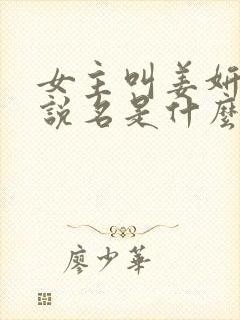 女主叫姜妍
說名是什麼
廖少華